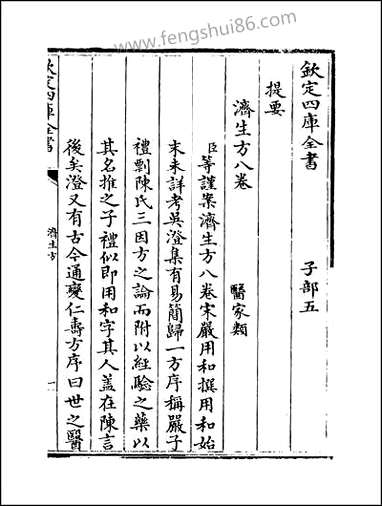 www.fengshui86.com
欽定四庫全書　子部五
提要　醫家類
濟生方八卷
臣等謹案濟生方八卷宋嚴用和撰用和始
末未詳考吳澄集有易簡歸一方序稱嚴子
禮剽陳氏三因方之論而附以經驗之藥以
其名推之子禮似即用和字其人蓋在陳言
後矣澄又有古今通變仁壽方序曰世之醫
欽定四庫全書
濟生方
一